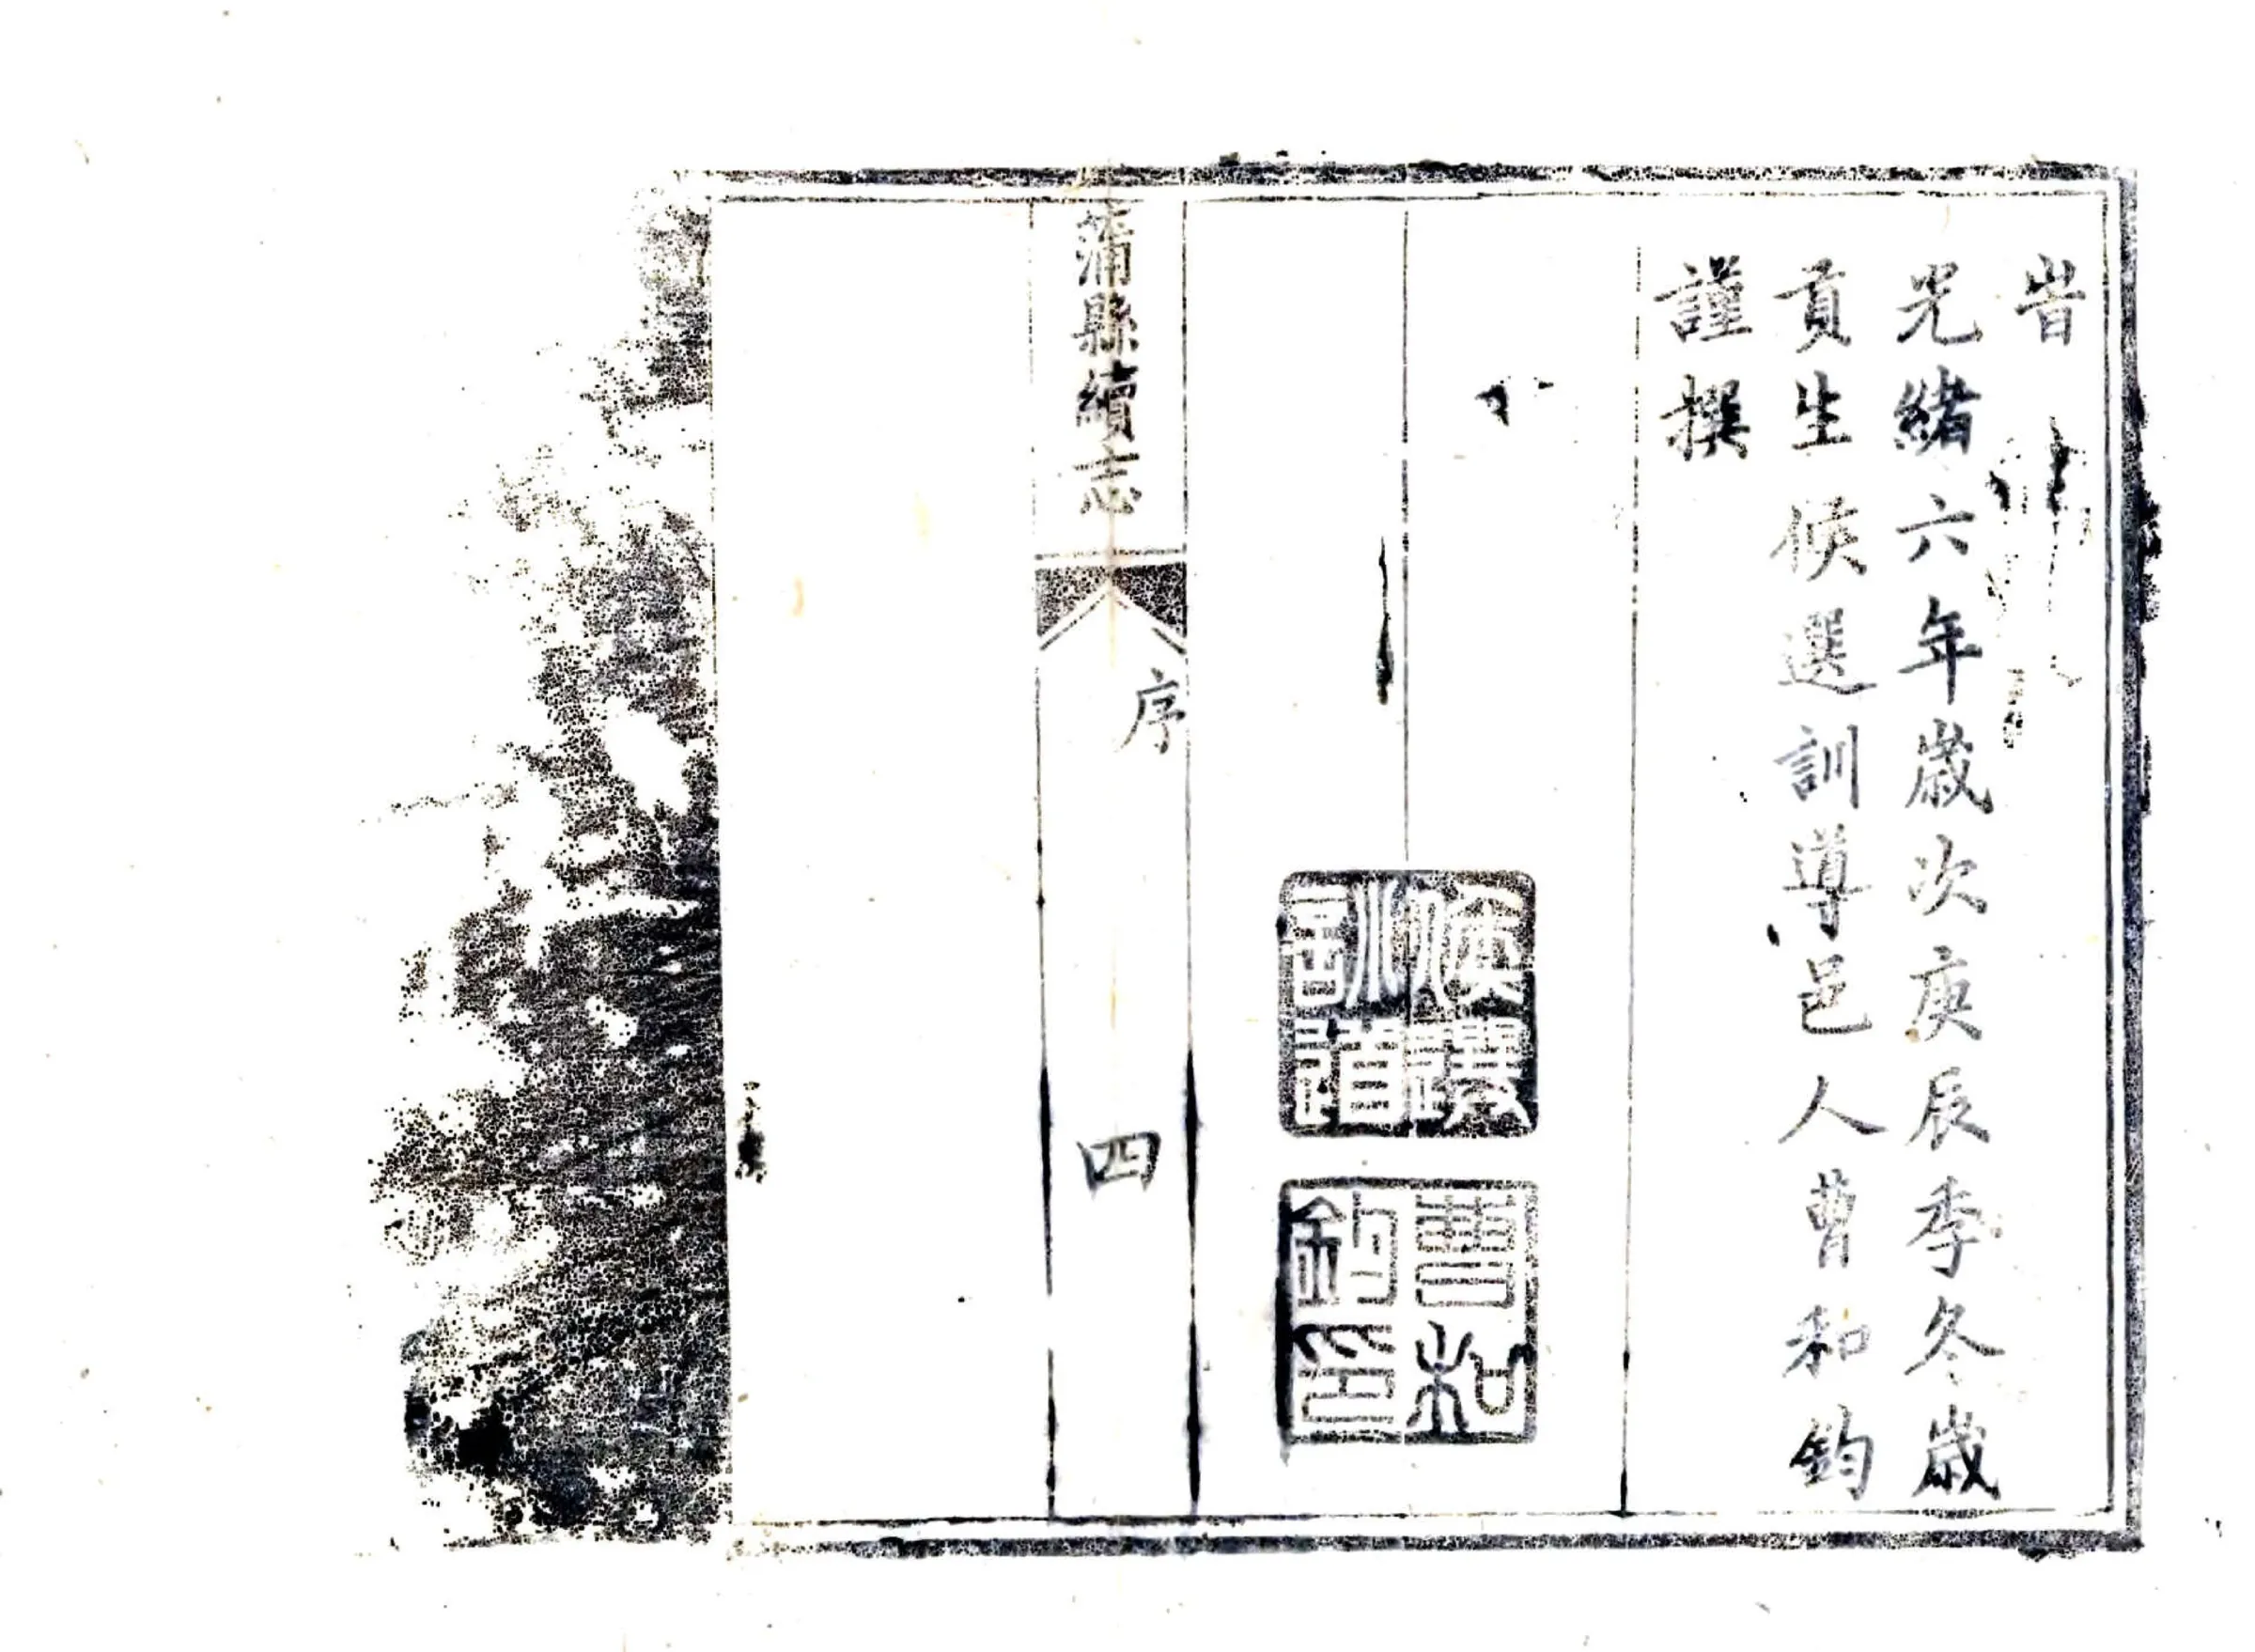 旹
光緒六年歲次庚辰季冬歲
貢生候選訓導邑人曹和鈞
謹撰
候選
訓道
曹和
鈞印
蒲縣續志
序
四